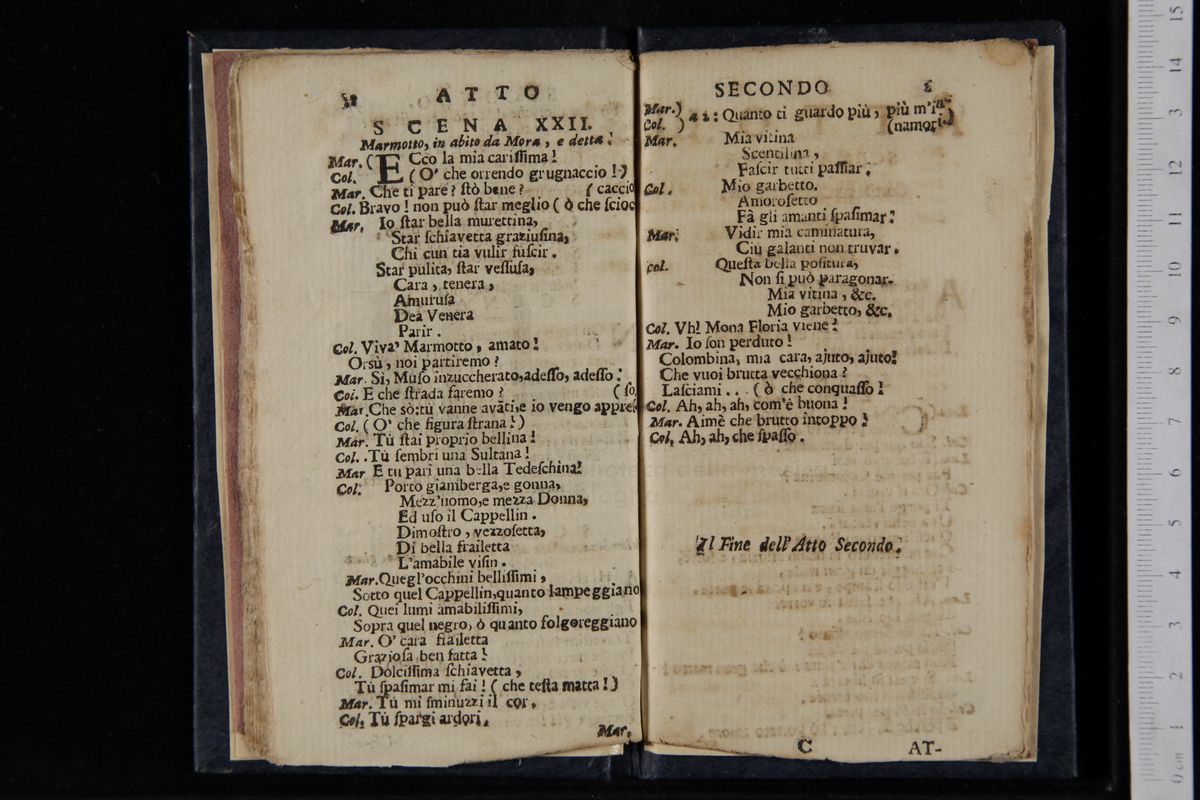 ATTO
SCENA XXII.
Marmotto, in abito da Mora, e detta.
Mar. (ECco la mia cariſſima!
Col. (O' che orrendo grugnaccio!)
Mar. Che ti pare? ſtò bene? (caccio
Col. Bravo! non può ſtar meglio (ò che ſcioc
Mar. Io ſtar bella murettina,
Star ſchiavetta graziuſina,
Chi cun tia vulir fuſcir.
Star pulita, ſtar veſſuſa,
Cara, tenera,
Amuruſa
Dea Venera
Parir.
Col. Viva' Marmotto, amato!
Orsù, noi partiremo?
Mar. Si, Muſo inzuccherato, adeſſo, adeſſo!
Col. E che ſtrada faremo? (ſo,
Mar. Che sò: tù vanne avāti, e io vengo appreſ
Col. (O' che figura ſtrana!)
Mar. Tù ſtai proprio bellina!
Col. Tù ſembri una Sultana!
Mar E tu pari una bella Tedeſchina!
Col. Porto giamberga, e gonna,
Mezz'uomo, e mezza Donna,
Ed uſo il Cappellin.
Dimoſtro, vezzoſetta,
Di bella frailetta
L'amabile viſin.
Mar. Quegl'occhini belliſſimi,
Sotto quel Cappellin, quanto lampeggiano
Col. Quei lumi amabiliſſimi,
Sopra quel negro, ò quanto folgoreggiano
Mar. O' cara frailetta
Grazioſa ben fatta!
Col. Dolciſſima ſchiavetta,
Tù ſpaſimar mi fai! (che teſta matta!)
Mar. Tù mi ſminuzzi il cor.
Col. Tù ſpargi ardori.
Mar.
SECONDO
Mar.) a 2: Quanto ti guardo più, più m'in-)
Col. ) (namori-)
Mar. Mia vitina
Scencilina,
Faſcir tutti paſſiar.
Col. Mio garbetto.
Amoroſetto
Fà gli amanti ſpaſimar!
Mar. Vidir mia caminatura,
Ciù galanti non truvar.
Col. Queſta bella poſitura,
Non ſi può paragonar.
Mia vitina, &c.
Mio garbetto, &c.
Col. Vh! Mona Floria viene!
Mar. Io ſon perduto!
Colombina, mia cara, ajuto, ajuto!
Che vuoi brutta vecchiona?
Laſciami... (ò che conquaſſo!
Col. Ah, ah, ah, com'è buona!
Mar. Aimè che brutto intoppo!
Col. Ah, ah, che ſpaſſo.
Il Fine dell'Atto Secondo.
C AT-